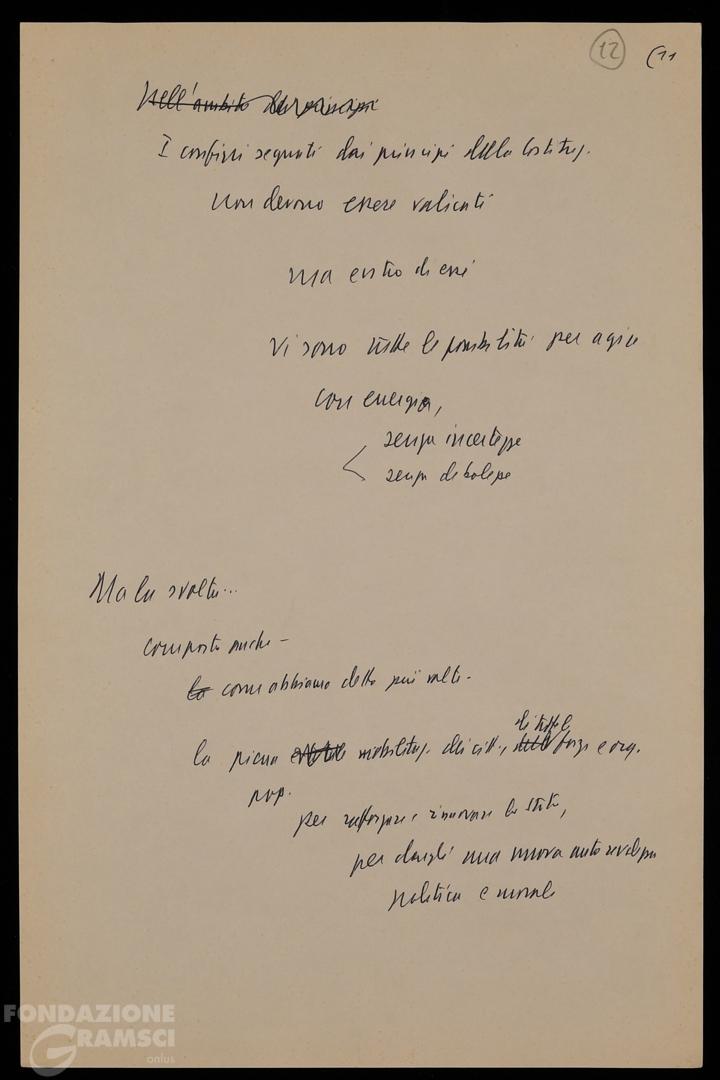 12 (11
Nell'ambito dei principi
I confini segnati dai principi della Costituz.
non devono essere valicati
ma entro di essi
vi sono tutte le possibilità per agire
con energia,
senza incertezze
senza debolezze
Ma la svolta...
comporta anche –
la come abbiamo detto più volte –
di tutte le
la piena mobilitaz. dei citt., delle forze e org.
pop.
per rafforzare e rinnovare lo Stato,
per dargli una nuova autorevolezza
politica e morale
FONDAZIONE
GRAMSCI
onlus